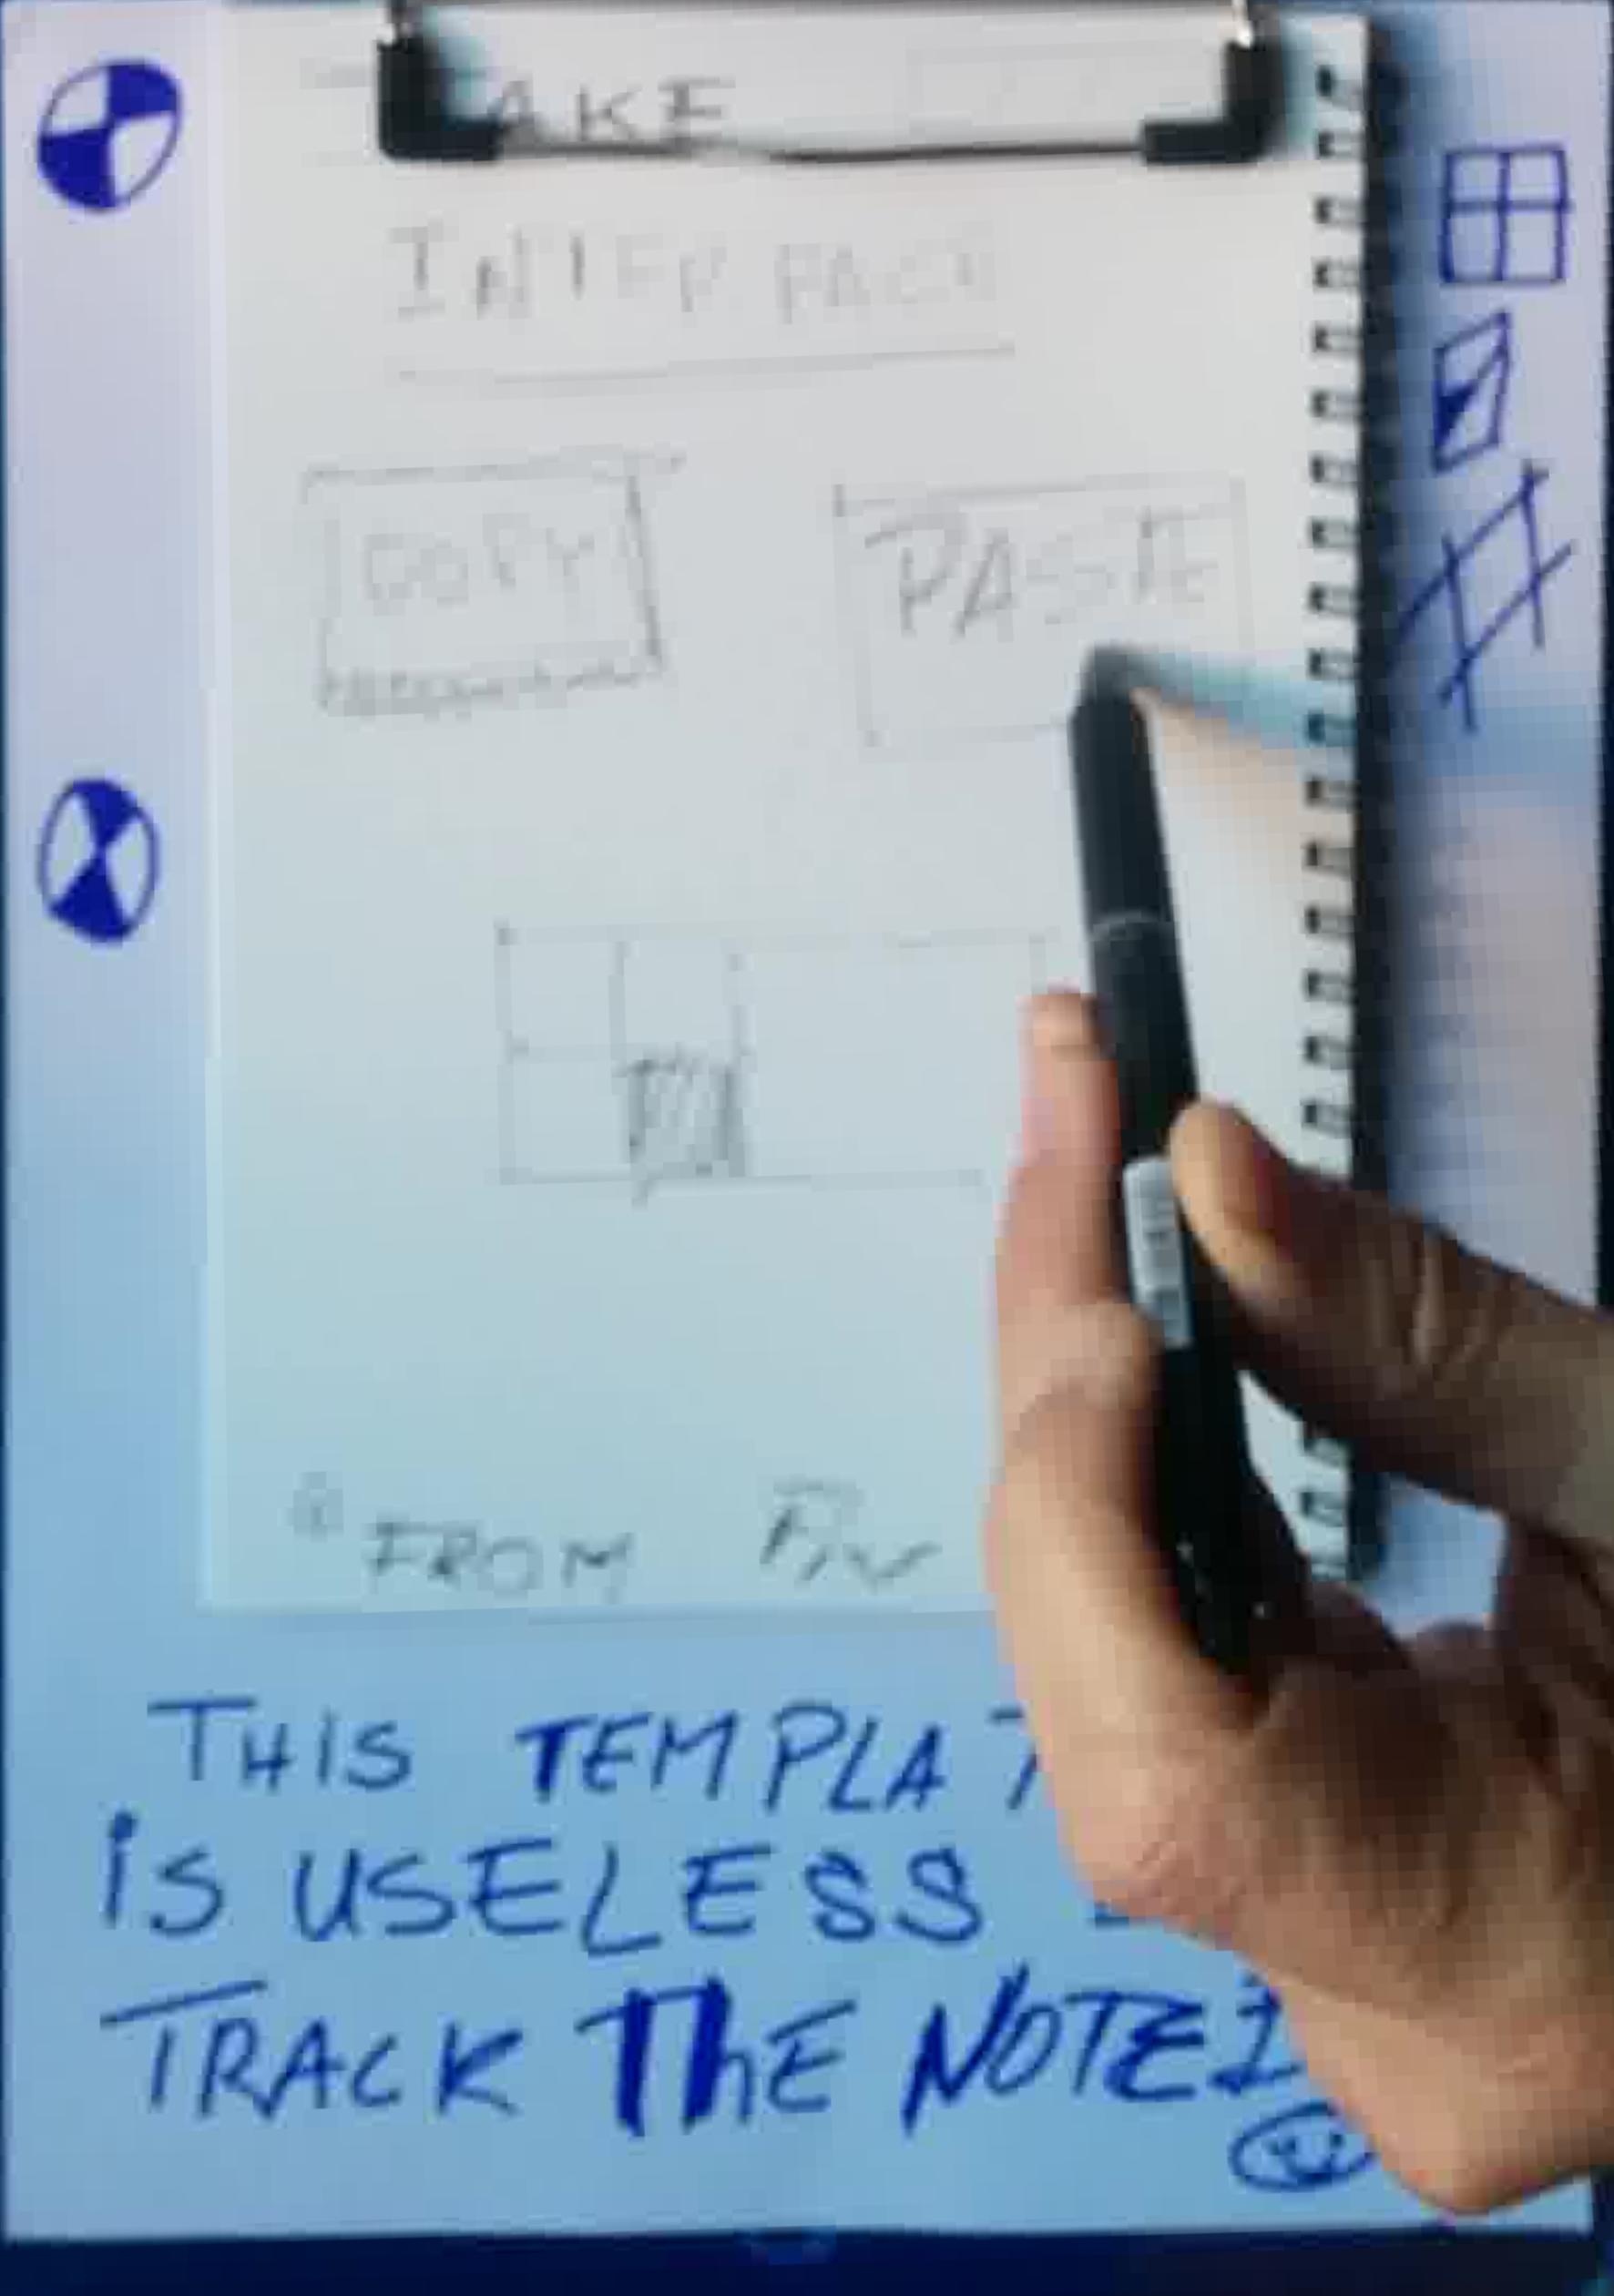 AKE
INTERFACE
COPY
PASTE
FROM
THIS TEMPLAT
iS USELESS
TRACK ThE NOTE